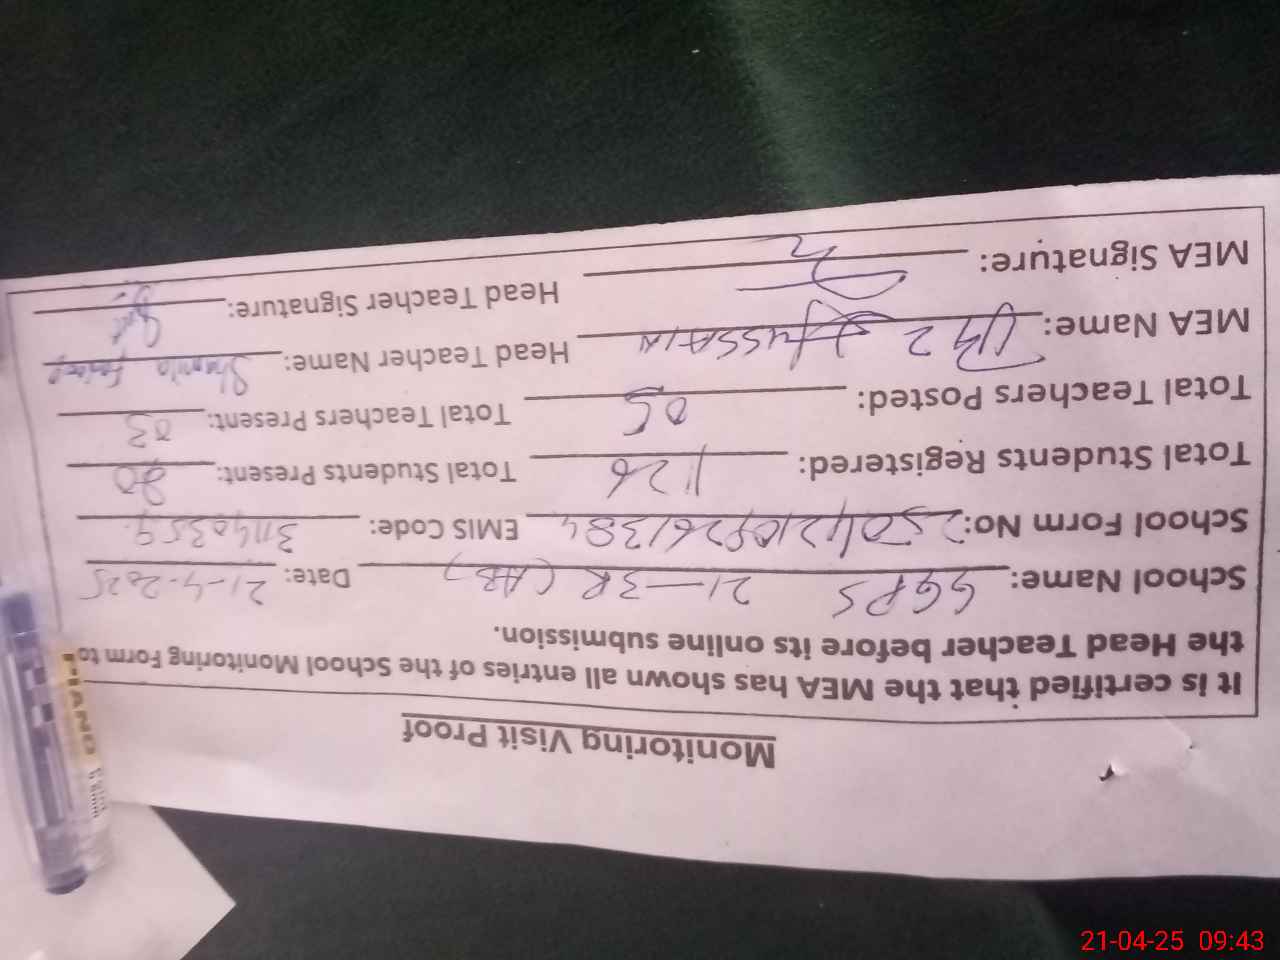 Monitoring Visit Proof
It is certified that the MEA has shown all entries of the School Monitoring Form to
the Head Teacher before its online submission.
School Name: GGPS 21-3R (AB) Date: 21-4-2025
School Form No: EMIS Code: 31140359
Total Students Registered: 126 Total Students Present: 90
Total Teachers Posted: 05 Total Teachers Present: 03
MEA Name: HUSSAIN Head Teacher Name:
MEA Signature: Head Teacher Signature:
21-04-25 09:43